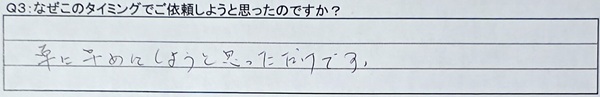 Q3:なぜこのタイミングでご依頼しようと思ったのですか?
単に早めにしようと思っただけです。